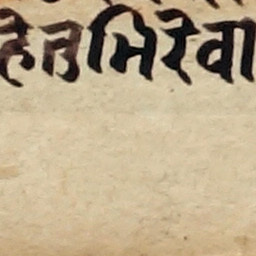 हेतुभिरेवा